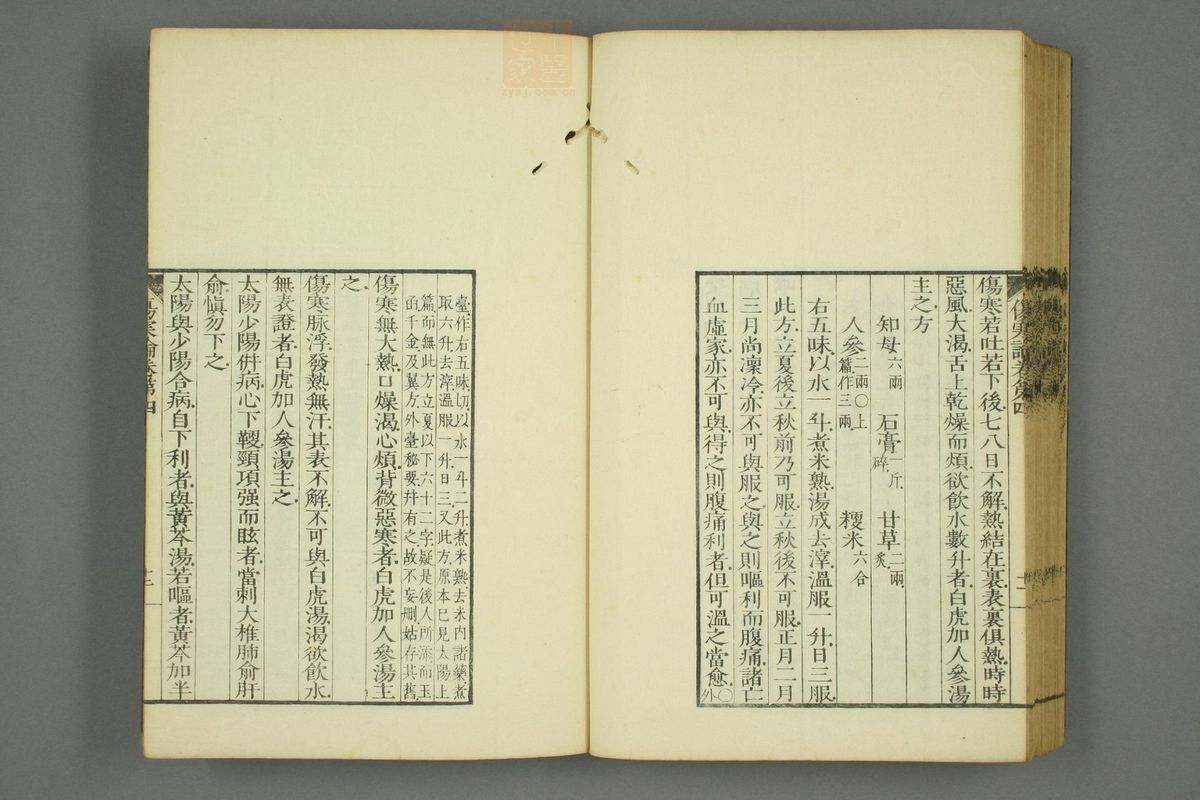 傷寒若吐若下後七八日不解熱結在裏表裏俱熱時時
惡風大渴舌上乾燥而煩欲飲水數升者白虎加人參湯
主之方
知母六兩 石膏一斤碎 甘草二兩炙
人參二兩○上篇作三兩 稉米六合
右五味以水一斗煮米熟湯成去滓溫服一升日三服
此方立夏後立秋前乃可服立秋後不可服正月二月
三月尚凜冷亦不可與服之與之則嘔利而腹痛諸亡
血虛家亦不可與得之則腹痛利者但可溫之當愈○外
臺作右五味切以水一斗二升煮米熟去米內諸藥煮
取六升去滓溫服一升日三又此方原本已見太陽上
篇而無此方立夏以下六十二字疑是後人所添而玉
函千金及翼方外臺秘要幷有之故不妄刪姑存其舊
傷寒無大熱口燥渴心煩背微惡寒者白虎加人參湯主
之
傷寒脉浮發熱無汗其表不解不可與白虎湯渴欲飲水
無表證者白虎加人參湯主之
太陽少陽併病心下鞕頸項强而眩者當刺大椎肺俞肝
俞愼勿下之
太陽與少陽合病自下利者與黃芩湯若嘔者黃芩加半
傷寒論卷第四
zysj.com.cn